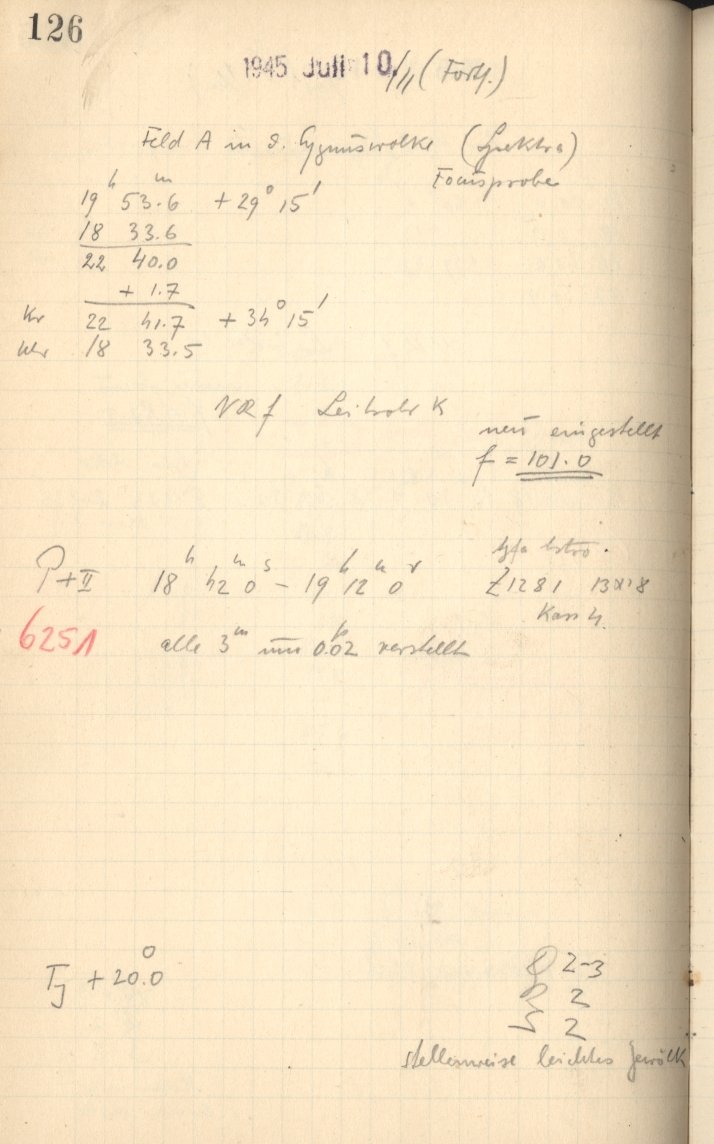 126
1945 Juli 10/11 (Forts.)
Feld A in d. Cygnuswolke (Spektra)
Focusprobe
19h 53m.6 +29° 15'
18 33.6
22 40.0
+ 1.7
Kr 22 41.7 +34° 15'
Uhr 18 33.5
Leitrohr K
neu eingestellt
f = 101.0
P+II 18h 42m 0s - 19h 12m 0s
Agfa Astro.
Z1281 13x18
Kass 4.
6251
alle 3m um 0.02 verstellt
Tj +20°.0
2-3
2
2
stellenweise leichtes Gewölk